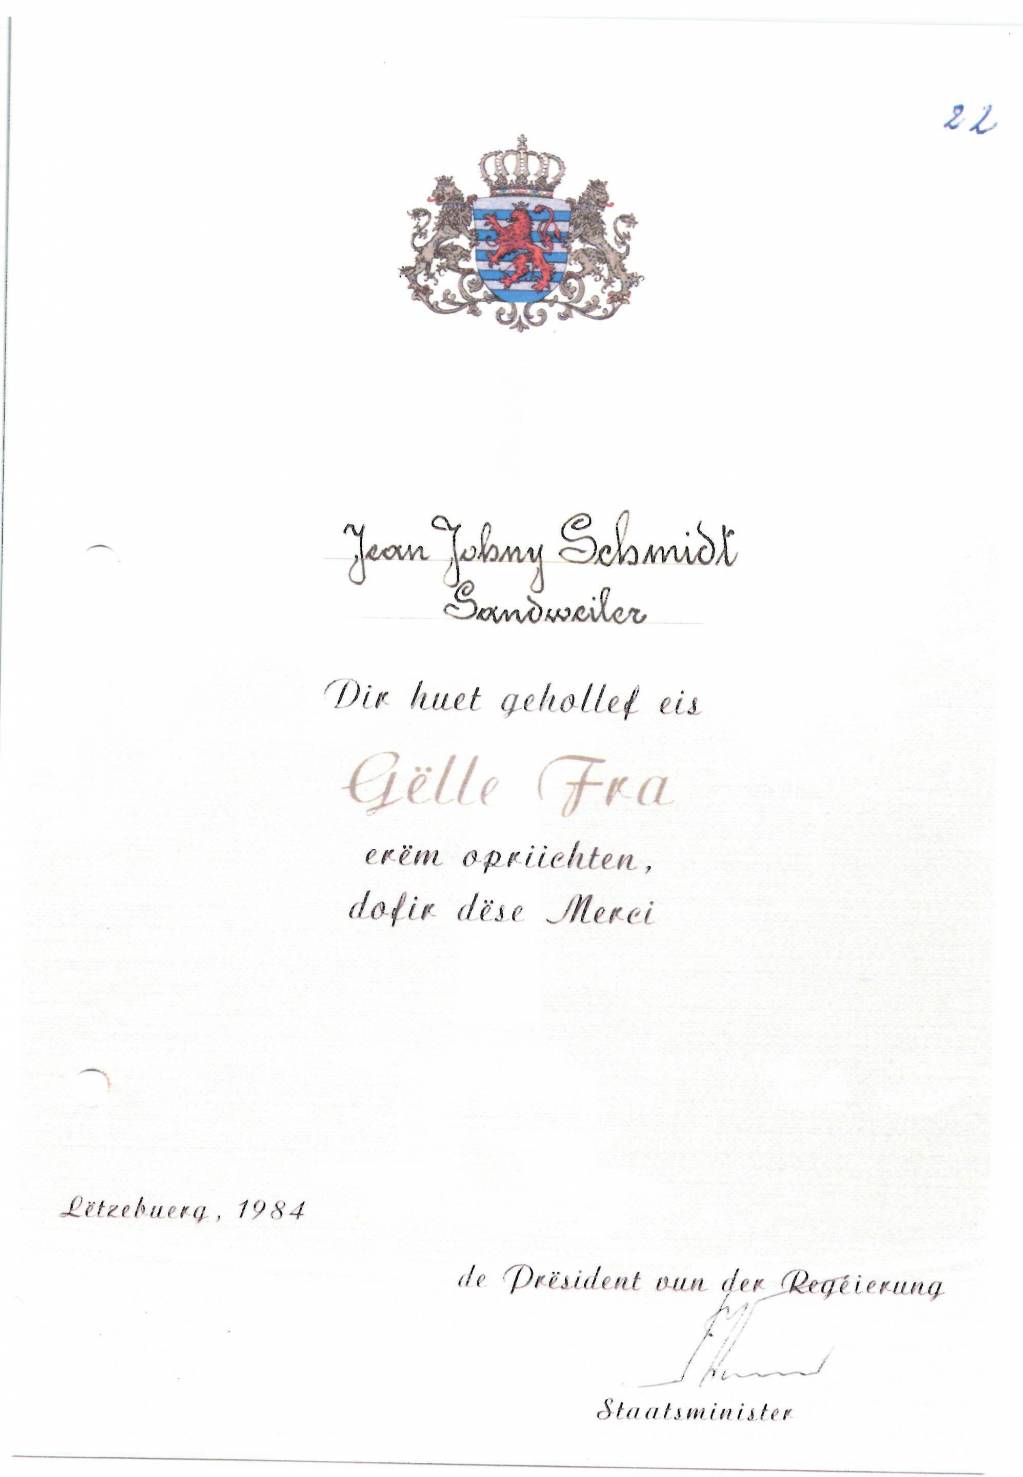 22
Jean Johny Schmidt
Sandweiler
Dir huet gehollef eis
Gëlle Fra
erëm opriichten,
dofir dëse Merci
Lëtzebuerg, 1984
de Prësident vun der Regéierung
Staatsminister